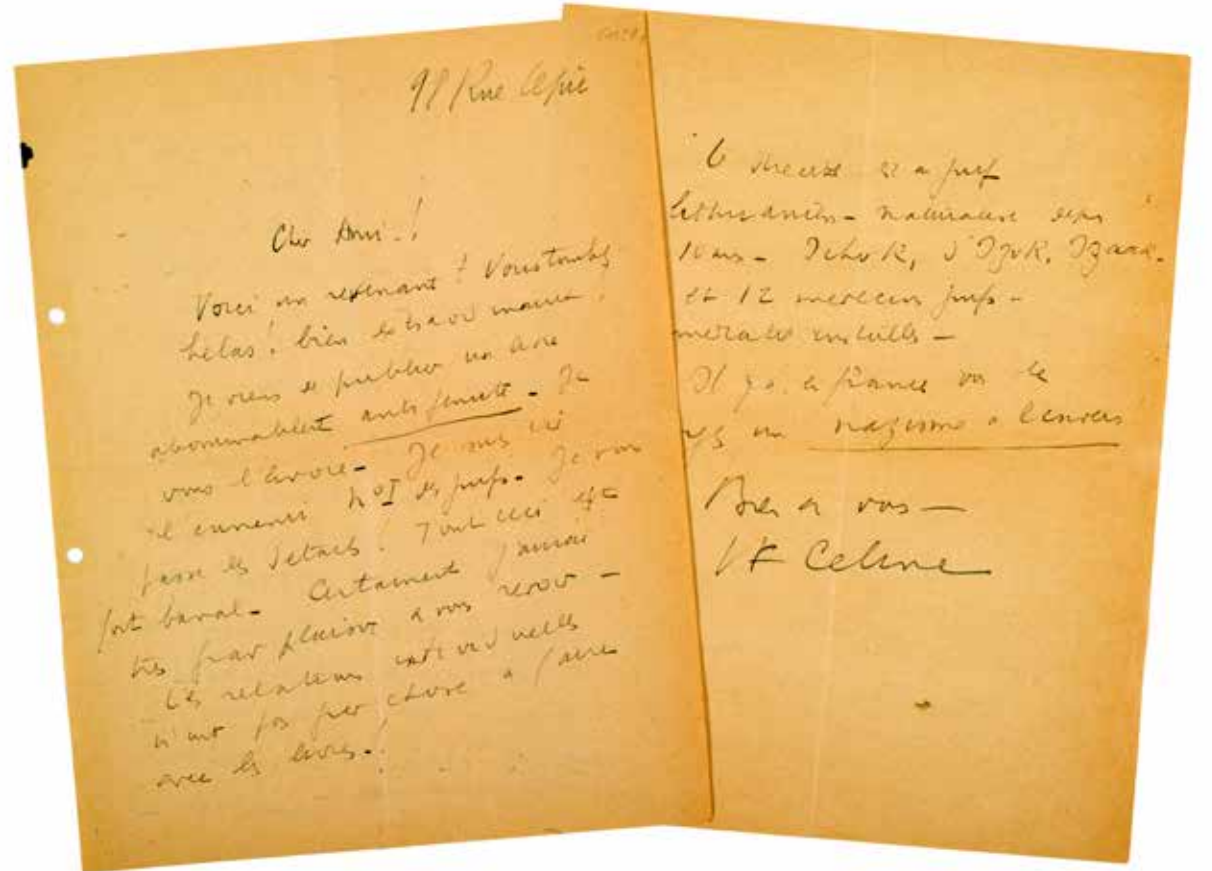 98 Rue Lepic
Cher Ami !
Voici un revenant ! Vous tombez
hélas ! bien extraordinairement !
Je viens de publier un livre
abominablement antisémite - Je
vous l'avoue - Je suis ici
l'ennemi N° I des juifs - Je vous
passe les détails ! Tout ceci est
fort banal - Certainement j'aurai
très grand plaisir à vous revoir -
Les relations individuelles
n'ont pas grand chose à faire
avec les livres - !
est un juif
lithuanien - naturalisé depuis
10 ans - Ichok, d'Isjok, Isaac -
et 12 médecins juifs -
Il y a en France
un nazisme à l'envers
Bien à vous -
LF Celine